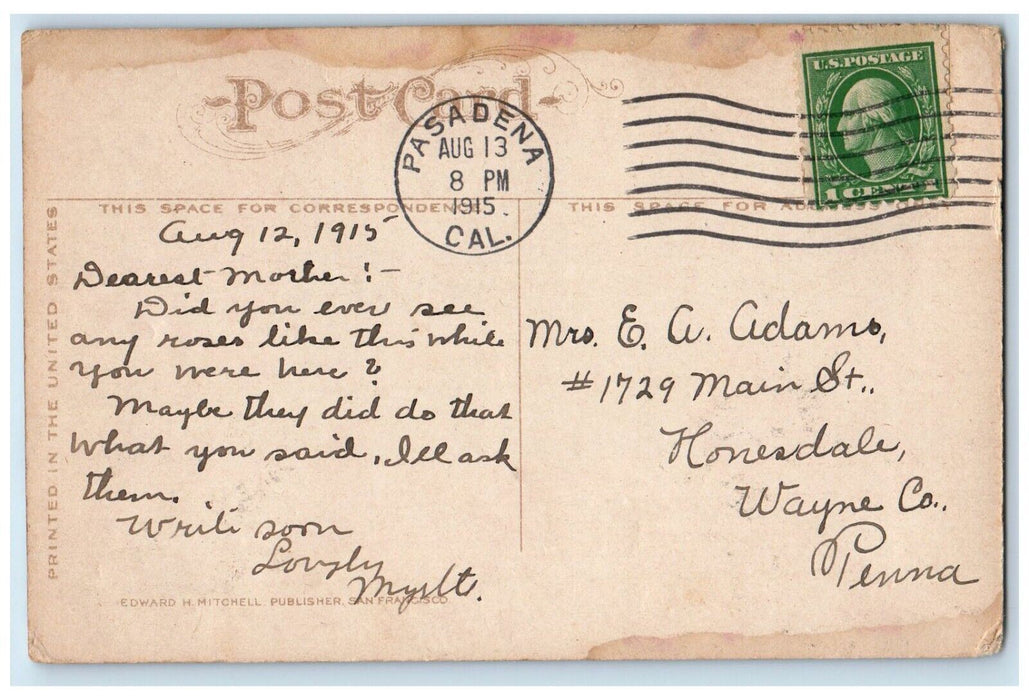 Post Card
U.S. POSTAGE
1 CENT
PASADENA
AUG 13
8 PM
1915
CAL.
PRINTED IN THE UNITED STATES
THIS SPACE FOR CORRESPONDENCE
Aug 12, 1915
Dearest Mother!-
Did you ever see
any roses like this while
you were here?
Maybe they did do that
what you said, I'll ask
them.
Write soon
Lovgly
EDWARD H. MITCHELL, PUBLISHER, SAN FRANCISCO
THIS SPACE FOR ADDRESS ONLY
Mrs. E. A. Adams,
#1729 Main St.,
Honesdale,
Wayne Co.,
Penna